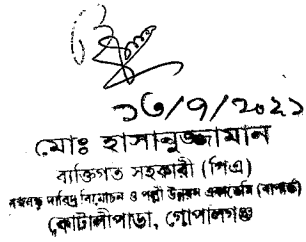 ১৩/৭/২০২১
মোঃ হাসানুজ্জামান
ব্যক্তিগত সহকারী (পিএ)
বঙ্গবন্ধু দারিদ্র্য বিমোচন ও পল্লী উন্নয়ন একাডেমি (বাপার্ড)
কোটালীপাড়া, গোপালগঞ্জ